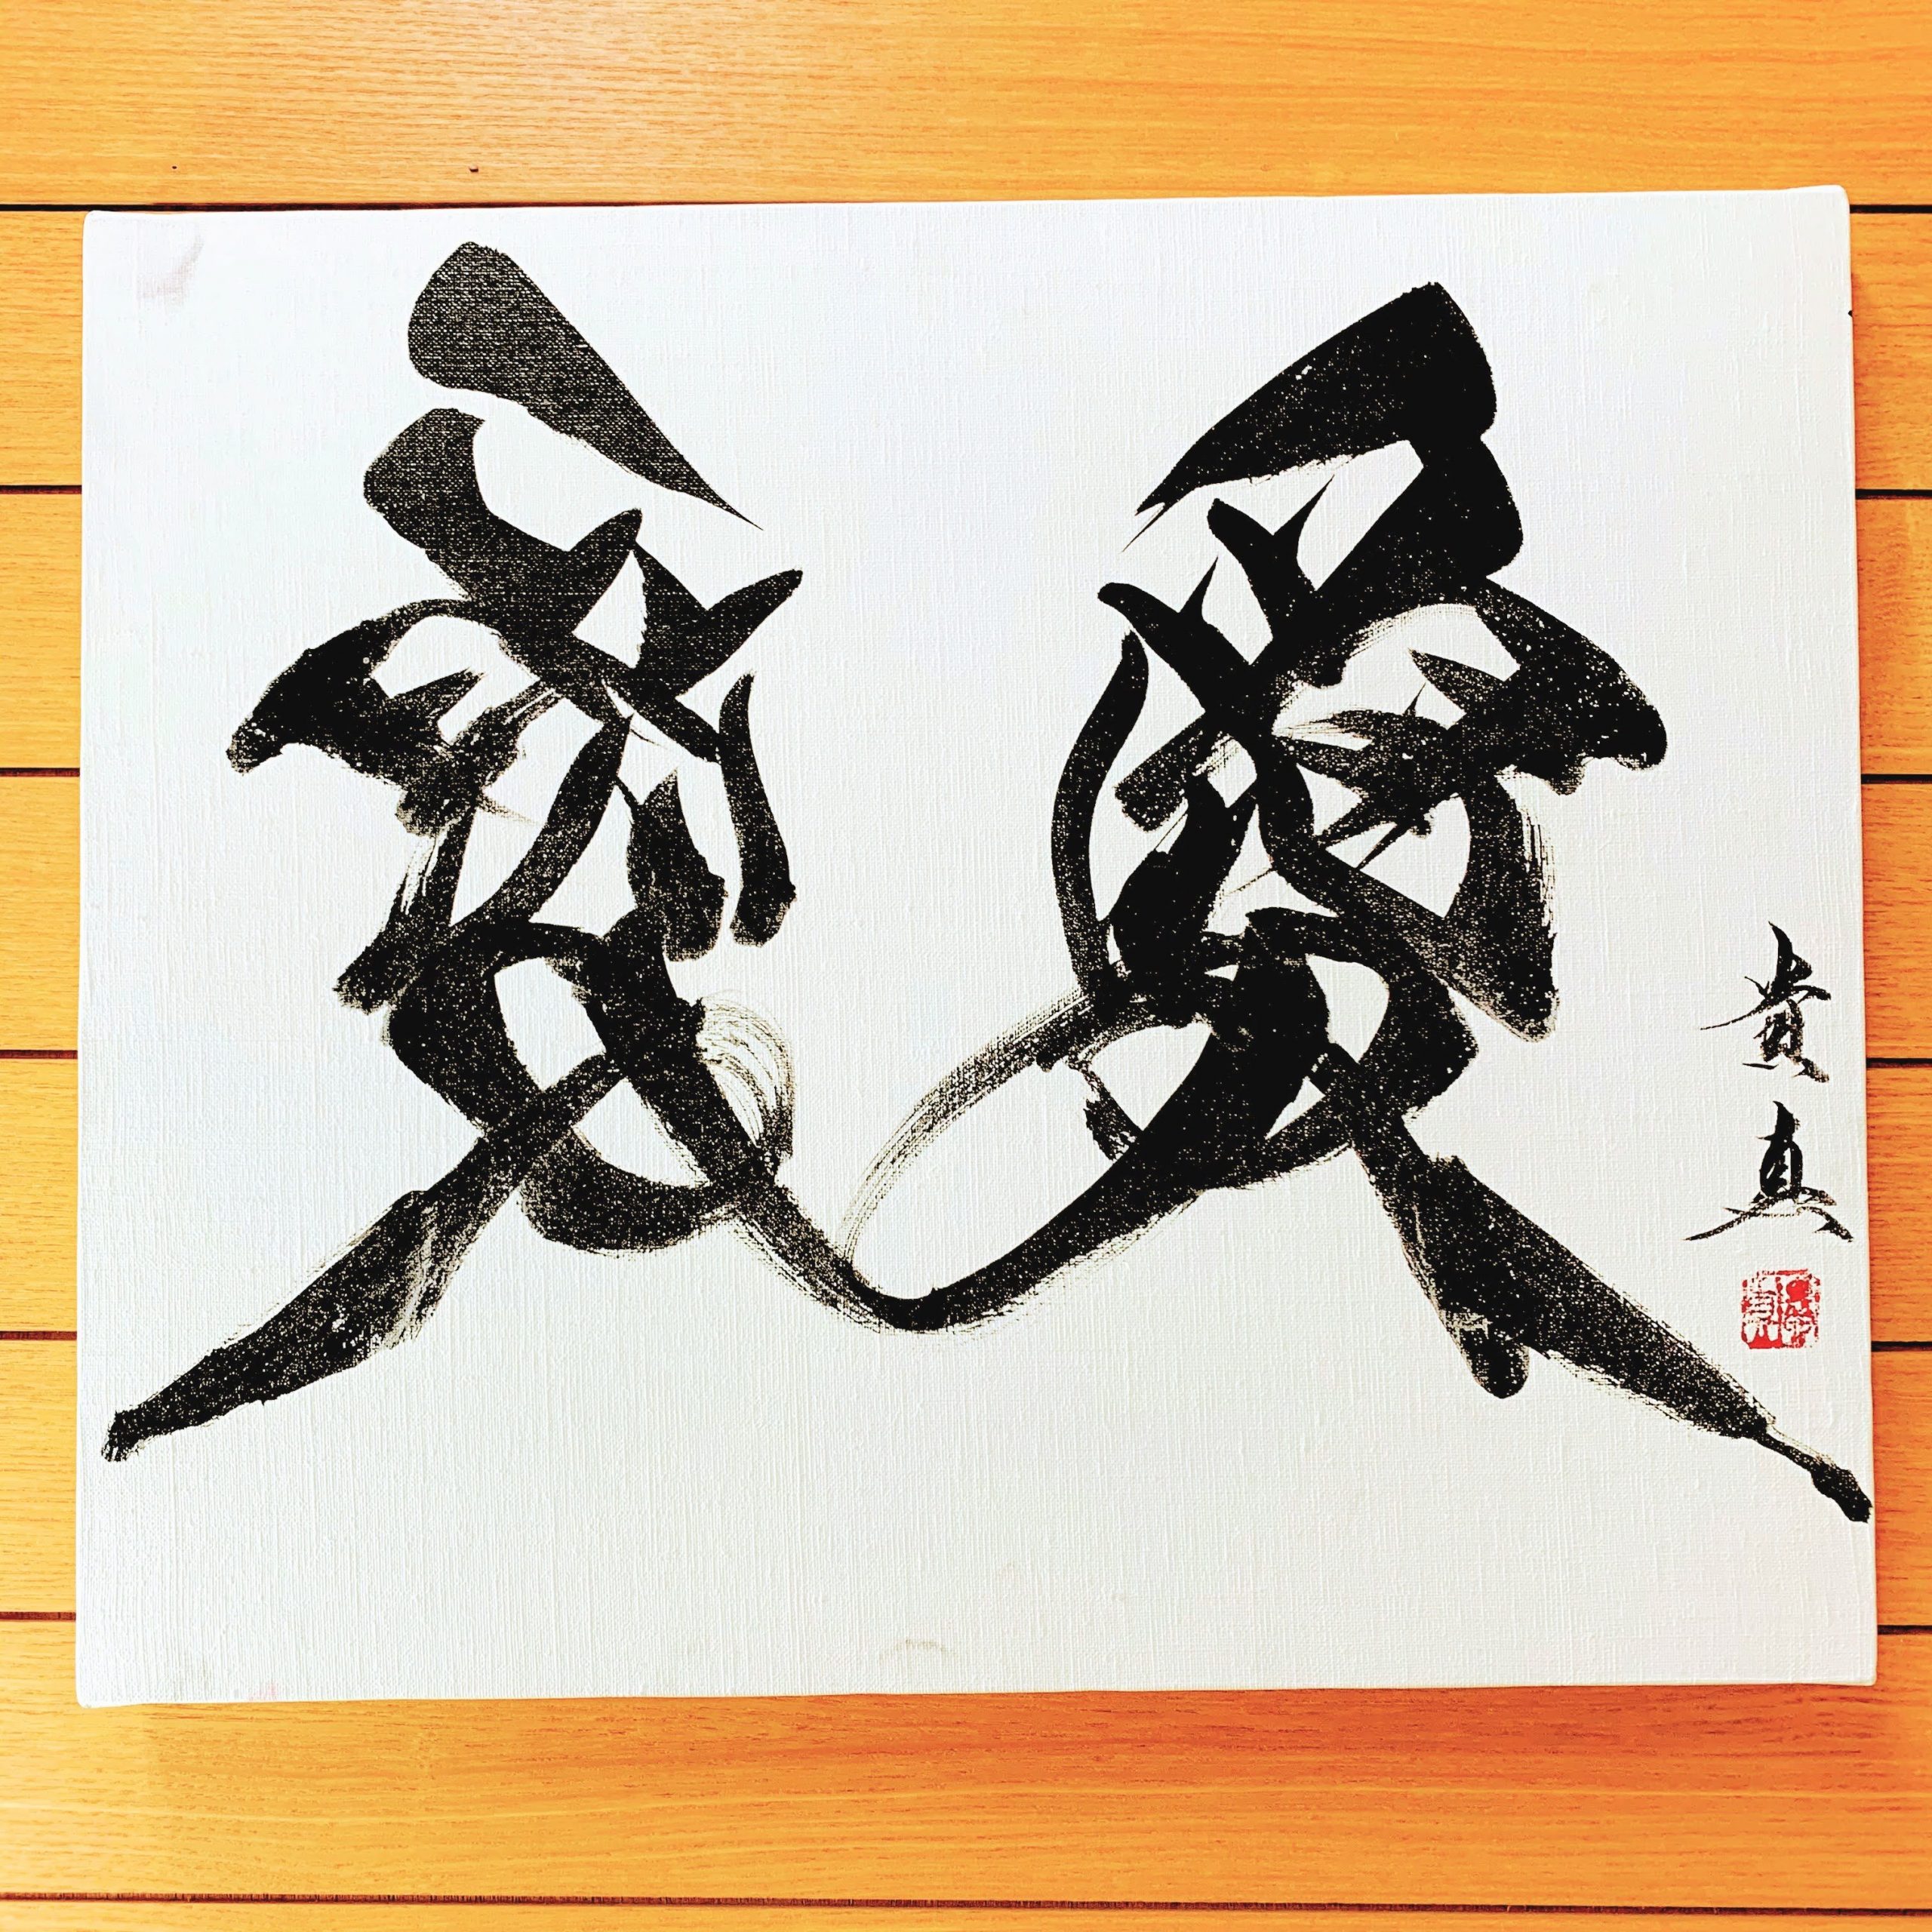 愛
愛
貴真